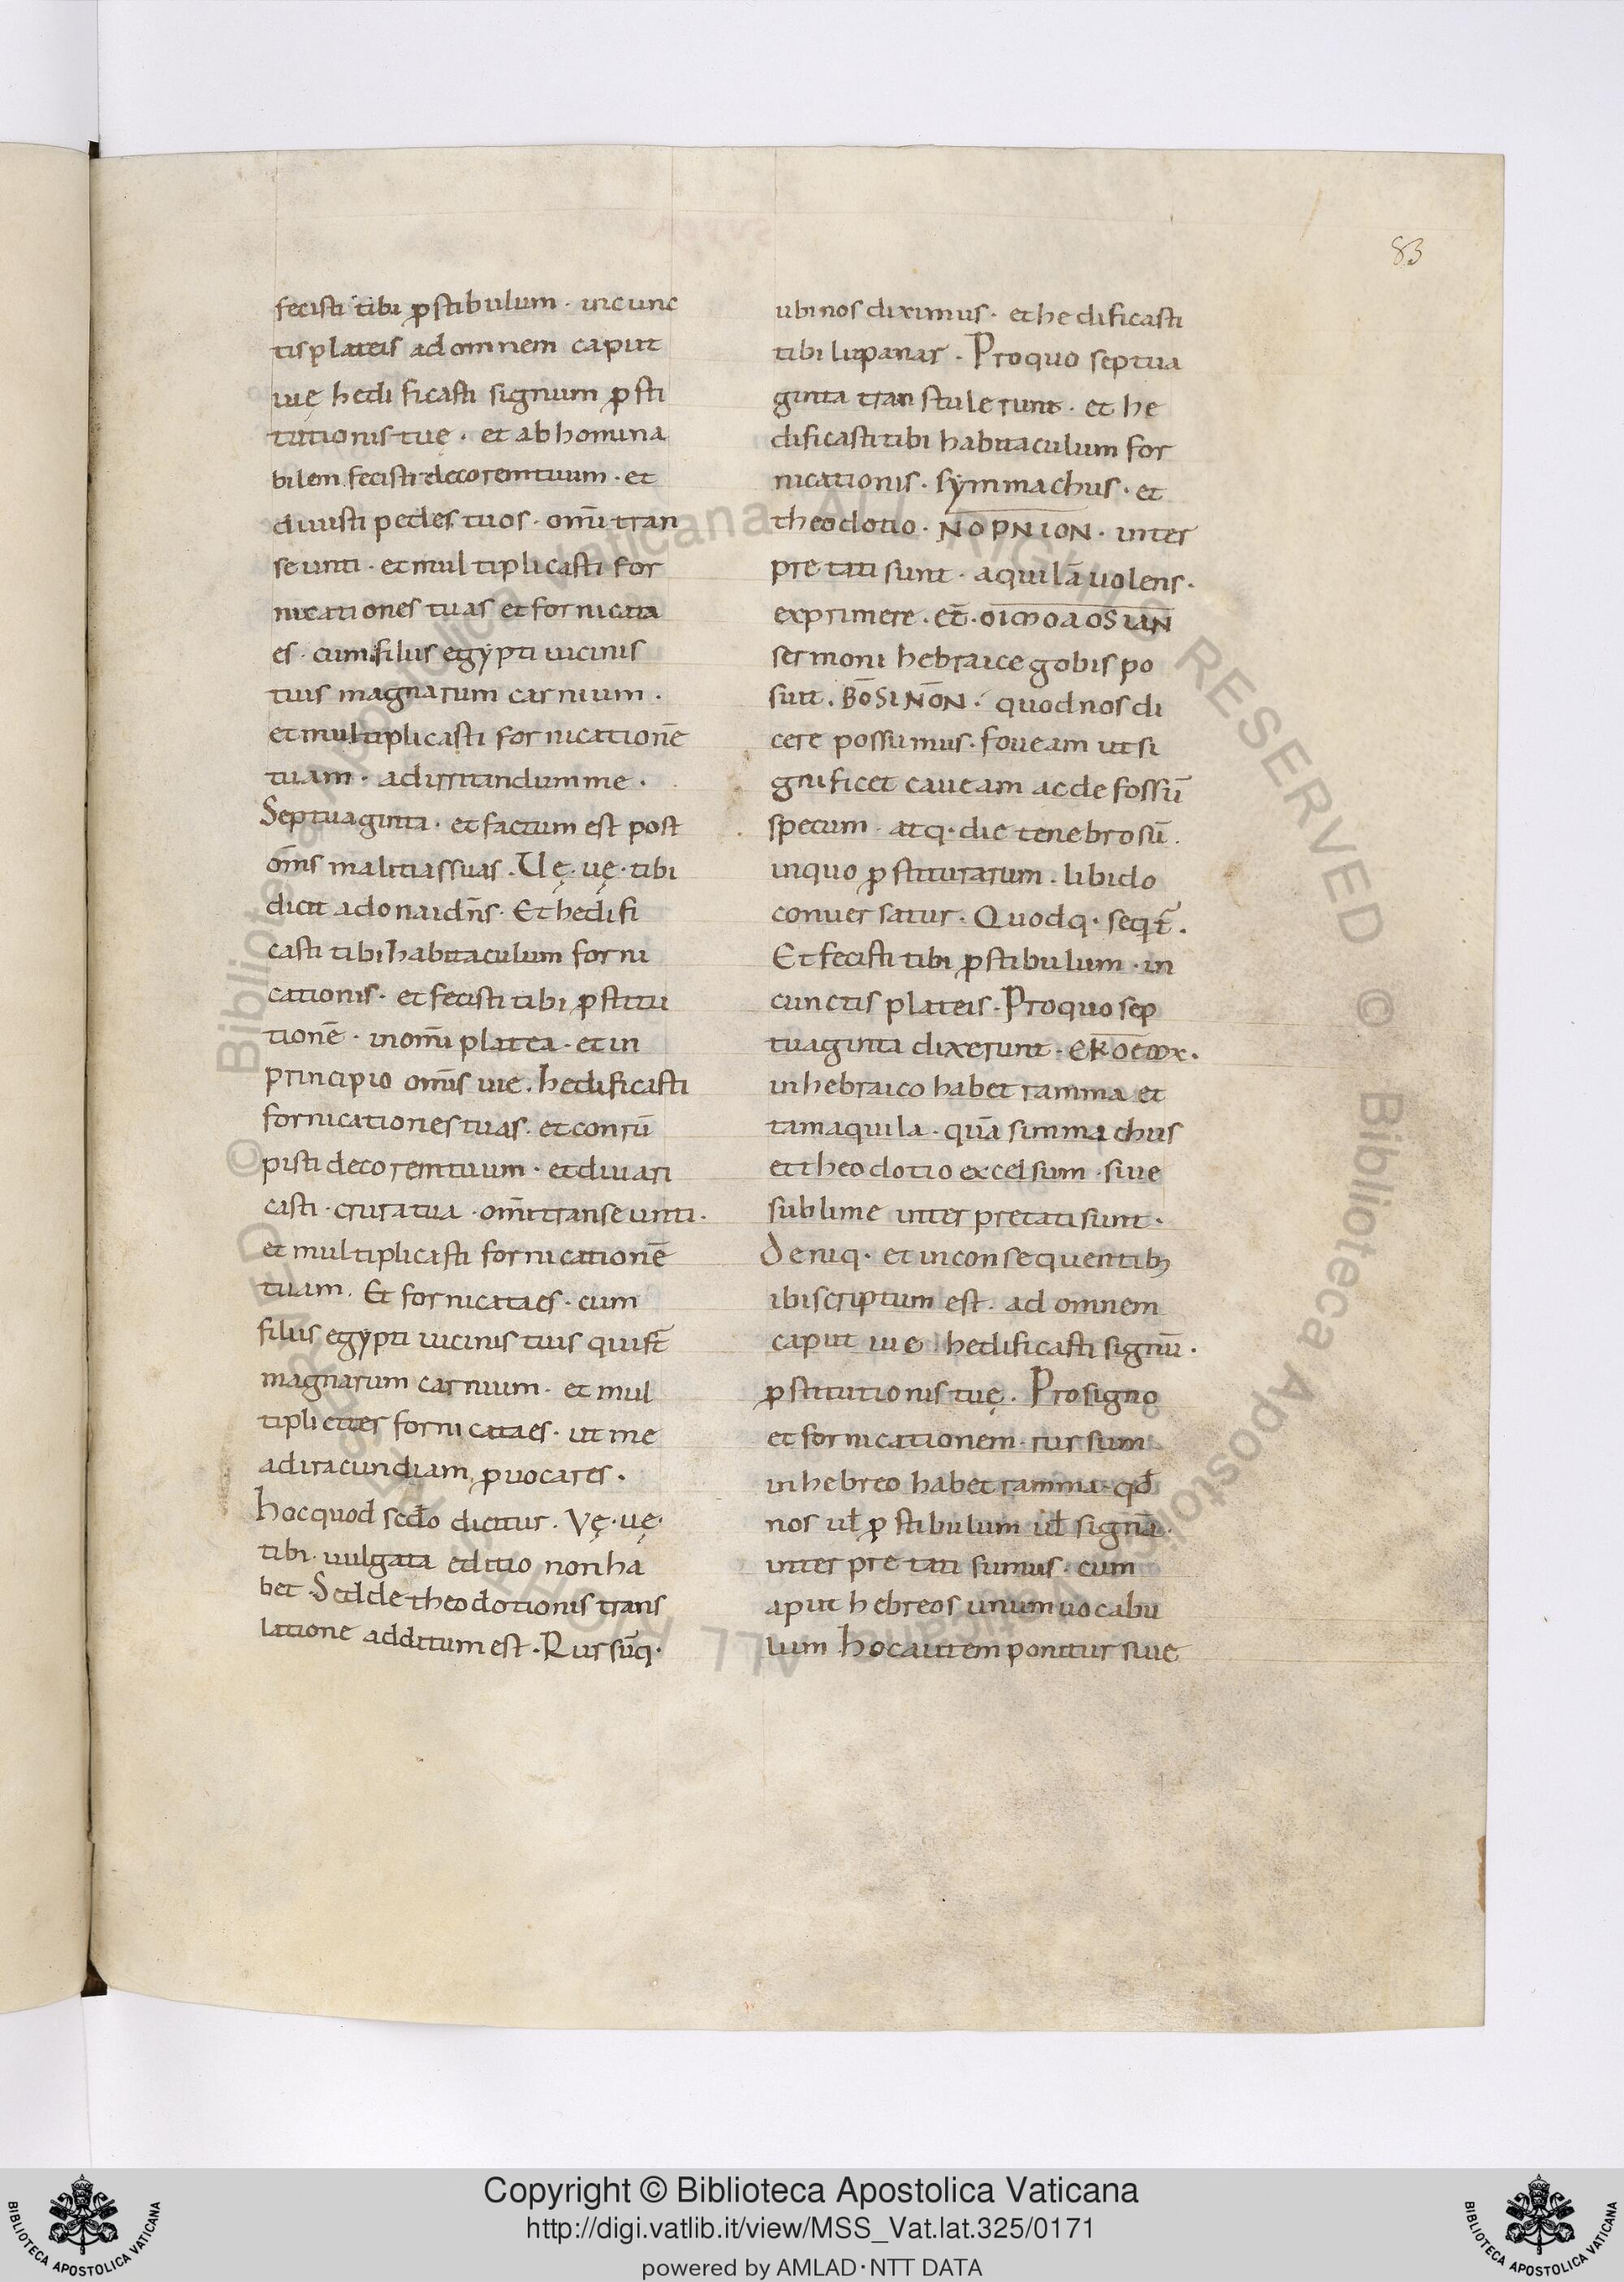 83
fecisti tibi ꝓstibulum · incunc
tis plateis ad omnem caput
uię hedificasti signum ꝓsti
tutionis tuę · et abhomina
bilem fecisti decorem tuum · et
diuisti pedes tuos · om̅i tran
seunti · et multiplicasti for
nicationes tuas et fornicata
es · cum filiis egypti uicinis
tuis magnarum carnium ·
et multiplicasti fornicationē
tuam · ad irritandum me ·
Septuaginta · et factum est post
om̅s malitias suas . Uę · uę · tibi
dicit adonai dn̅s · Et hedifi
casti tibi habitaculum forni
cationis · et fecisti tibi ꝓstitu
tionē · in om̅i platea · et in
principio om̅is uie . hedificasti
fornicationes tuas . et conrū
pisti decorem tuum · et diuari
casti · crura tua · om̅i transeunti ·
et multiplicasti fornicationē
tuam . Et fornicata es · cum
filiis egypti uicinis tuis qui st̅
magnarum carnium · et mul
tipliciter fornicata es · ut me
ad iracundiam ꝓuocares .
hoc quod scdo dicitur . Vę · uę ·
tibi · uulgata editio non ha
bet · Sed de theodotionis trans
latione additum est . Rursūq ·
ubi nos diximus · et hedificasti
tibi lupanar . Pro quo septua
ginta transtulerunt · et he
dificasti tibi habitaculum for
nicationis · symmachus · et
theodotio · NOPNION · inter
pretati sunt · aquilā uolens ·
exprimere · et̅ · OIMOAOSIAN
sermoni hebraice gobis po
suit . BOSINON · quod nos di
cere possumus · foueam ut si
gnificet caueam ac de fossū
specum · atq · dic tenebrosū .
in quo ꝓstiturarum . libido
conuersatur · Quodq · seqt̅ .
Et fecisti tibi ꝓstibulum · in
cunctis plateis · Pro quo sep
tuaginta dixerunt ·
in hebraico habet ramma et
tam aquila · quā simmachus
et theodotio excelsum · siue
sublime interpretati sunt ·
deniq · et in consequentibꝫ
ibi scriptum est · ad omnem
caput uie hedificasti signū ·
ꝓstitutionis tuę . Pro signo
et fornicationem · rursum
in hebreo habet ramma · qđ
nos uł ꝓstibulum uł signā ·
interpretati sumus · cum
aput hebreos unum uocabu
lum hoc autem ponitur siue
© Biblioteca Apostolica Vaticana ALL RIGHTS RESERVED © Biblioteca Apostolica Vaticana ALL RIGHTS RESERVED
Copyright © Biblioteca Apostolica Vaticana
http://digi.vatlib.it/view/MSS_Vat.lat.325/0171
powered by AMLAD·NTT DATA
BIBLIOTECA APOSTOLICA VATICANA
BIBLIOTECA APOSTOLICA VATICANA